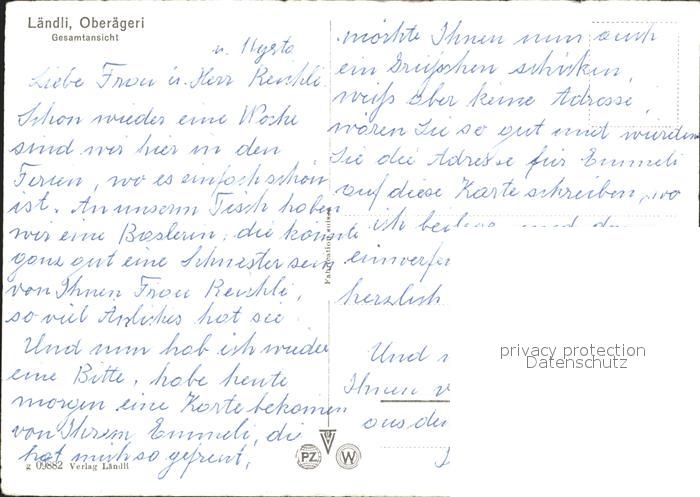 Ländli, Oberägeri
Gesamtansicht
Liebe Frau u. Herr Reichli
Schon wieder eine Woche
sind wir hier in den
Ferien, wo es einfach schön
ist. An unserm Tisch haben
wir eine Baslerin, die könnte
ganz gut eine Schwester sein
von Ihnen Frau Reichli,
so viel Änliches hat sie
Und nun hab ich wieder
eine Bitte, habe heute
morgen eine Karte bekomen
von Ihrem Emmeli, die
hat mich so gefreut,
möchte Ihnen nun auch
ein Grüsschen schicken,
weiss aber keine Adresse,
wären Sie so gut und würden
Sie die Adresse für Emmeli
auf diese Karte schreiben, wo
ich
einverfa
herzlich
Und
Ihnen
aus der
Fabrikation suisse
PZ
W
g 09882 Verlag Ländli
privacy protection
Datenschutz